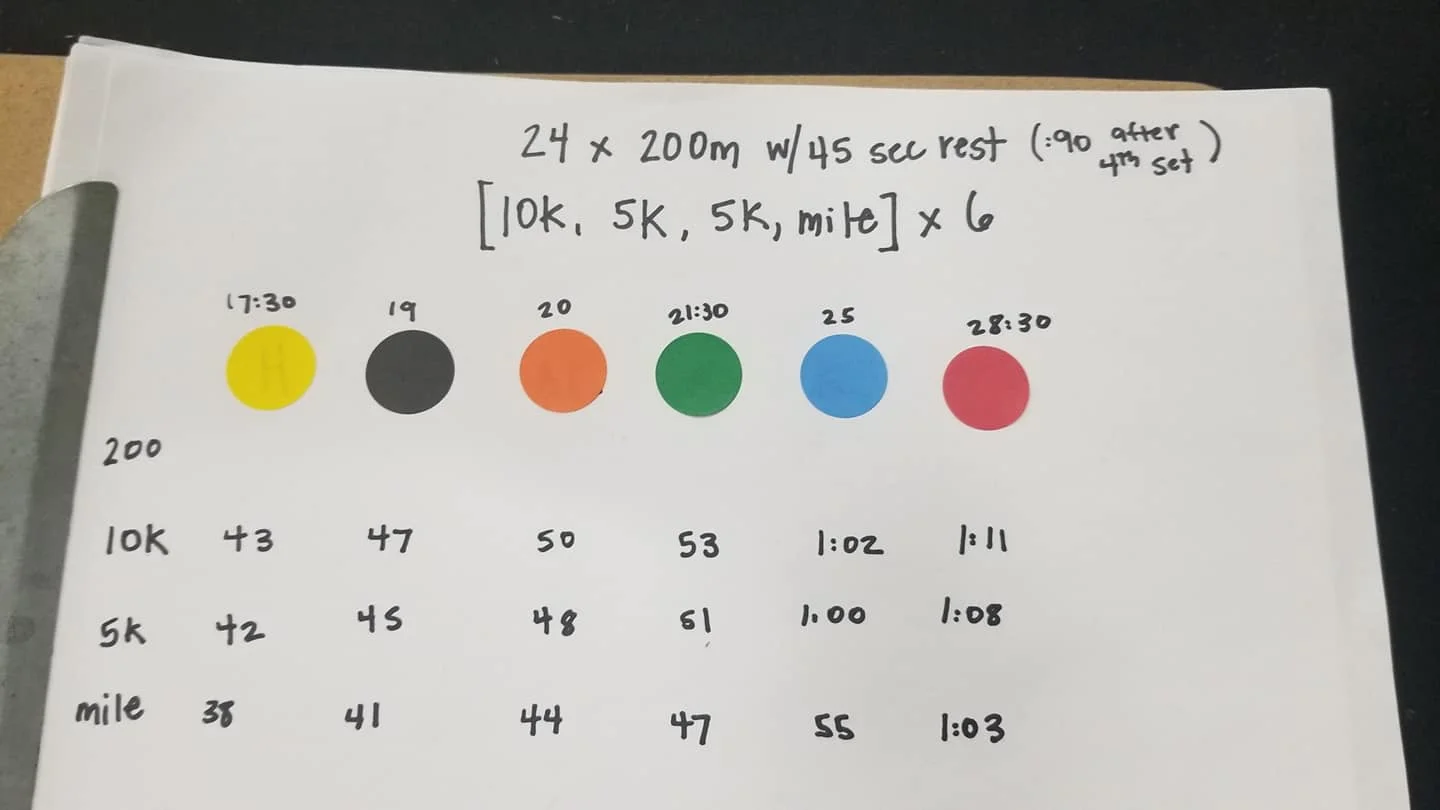 24 x 200m w/45 sec rest (:90 after 4th set)
[10k, 5k, 5k, mile] x 6
17:30 19 20 21:30 25 28:30
200
10k 43 47 50 53 1:02 1:11
5k 42 45 48 51 1:00 1:08
mile 38 41 44 47 55 1:03